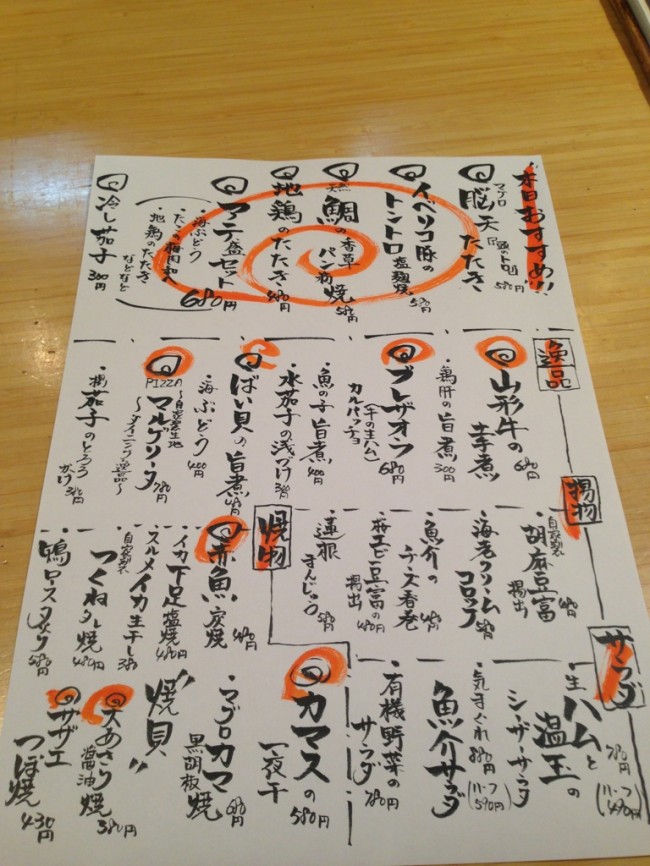 本日おすすめ!!
マグロ
脳天たたき
580円
イベリコ豚の
トントロ塩麹焼
580円
天然
鯛の香草
パン粉焼
580円
地鶏のたたき
480円
アテ盛セット
680円
・海ぶどう
・地鶏のたたき
などなど
冷し茄子
300円
逸品
山形牛の
芋煮
680円
・鶏肝の旨煮
300円
ブレザオラ
(牛の生ハム)
カルパッチョ
680円
・魚の子旨煮
400円
・水茄子の浅づけ
300円
ばい貝の旨煮
・海ぶどう
400円
PIZZA
〜自家製生地
マルゲリータ
〜ダイニング逸品〜
780円
・揚茄子のとろろ
かけ
380円
揚物
自家製
胡麻豆富
揚出
・海老クリーム
コロッケ
・魚介の
チーズ春巻
・桜エビ豆富の
揚出
480円
・蓮根
まんじゅう
580円
焼物
赤魚炭焼
・イカ下足塩焼
480円
・スルメイカ生干し
380
自家製
つくねタレ焼
480円
・鴨ロースタタキ
680円
サラダ
・生ハムと
温玉の
シーザーサラダ
780円
(ハーフ
490円)
・気まぐれ
魚介サラダ
880円
(ハーフ
590円)
・有機野菜の
サラダ
780円
カマスの
一夜干
580円
・マグロカマ
黒胡椒焼
680円
“焼貝”
大あさり
醤油焼
380円
サザエ
つぼ焼
430円